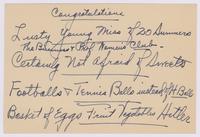 Congratulations
Lusty Young Miss of 20 Summers
The Business & Prof Women's Club -
Certainly Not Afraid of Sweets
Footballs & Tennis Balls instead of H Balls
Basket of Eggs Fruit Vegetables Hitler